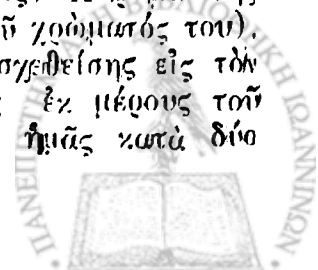 ῦ χρώματός του).
σχεθείσης εἰς τὸν
ἐκ μέρους τοῦ
ἡμᾶς κατὰ δύο
ΠΑΝΕΠΙΣΤΗΜΙΟ ΙΩΑΝΝΙΝΩΝ